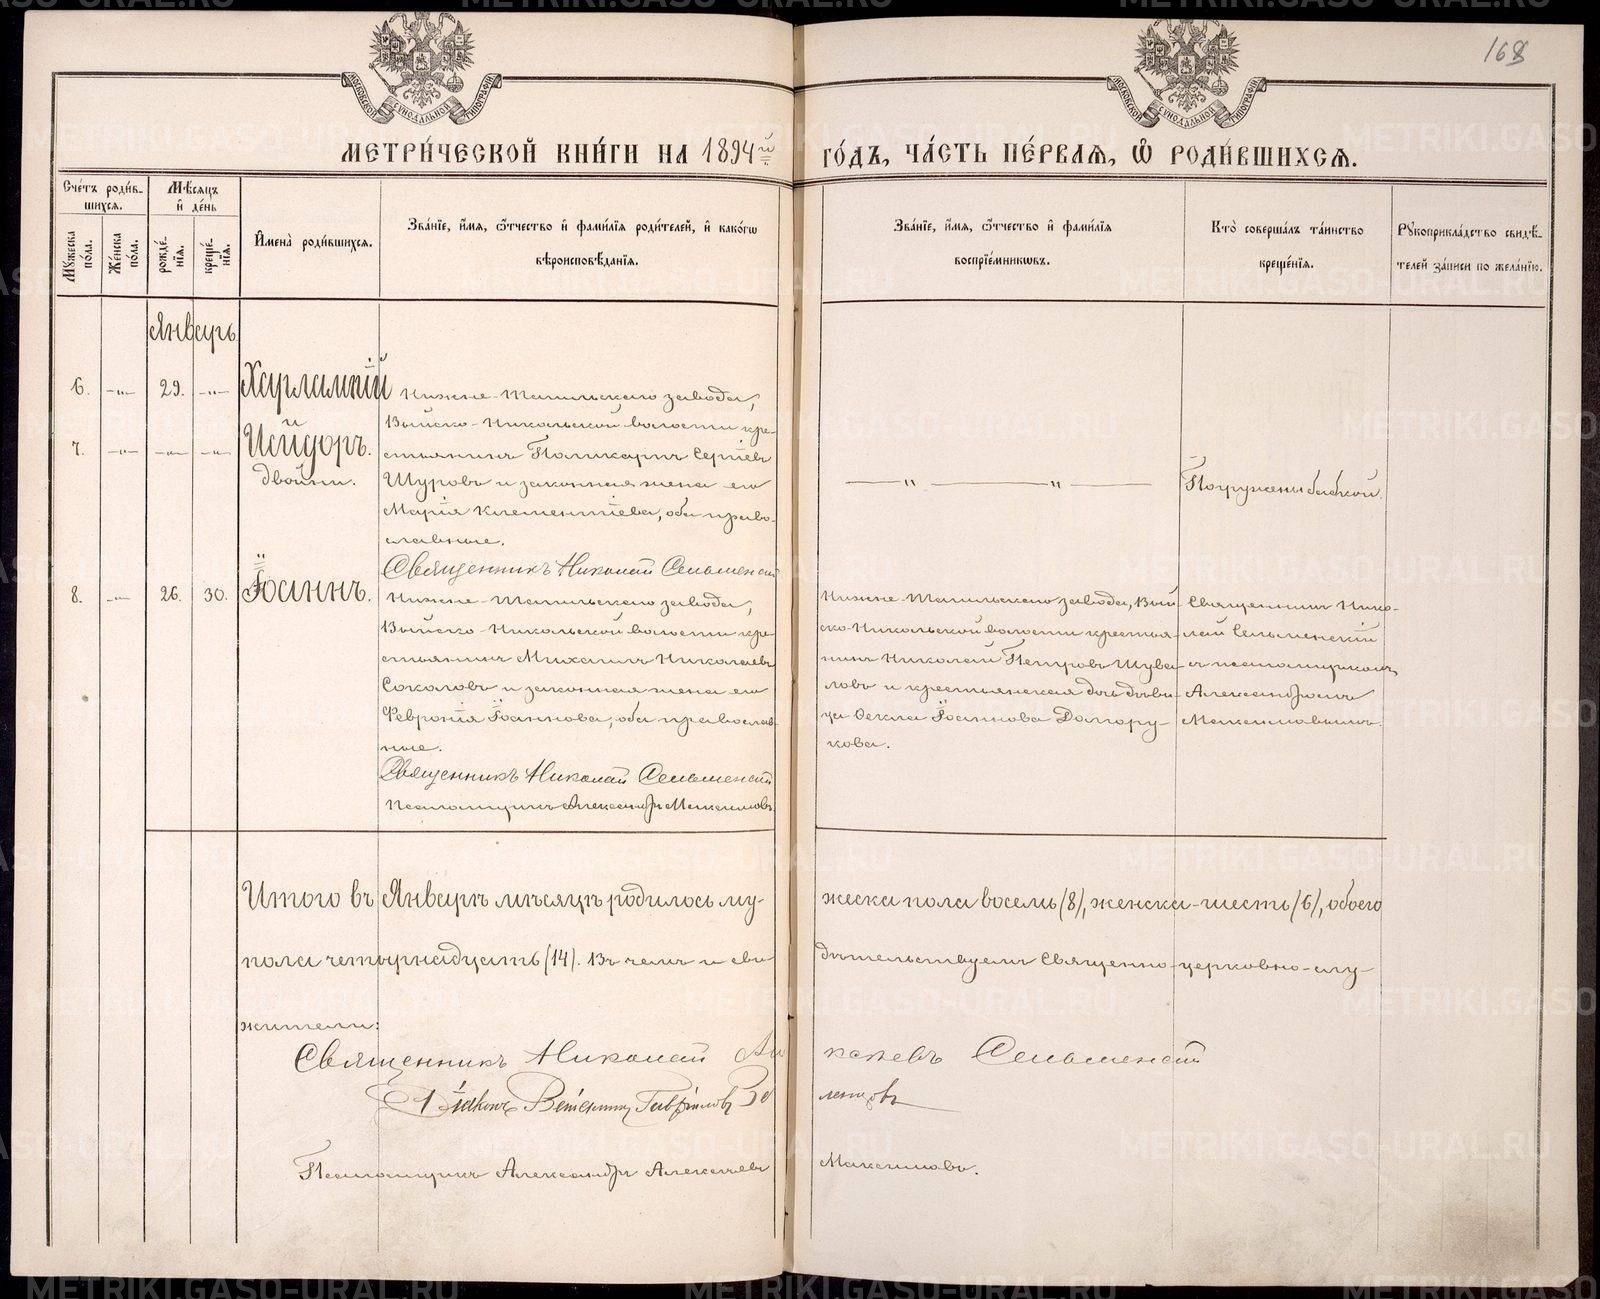 168
МОСКОВСКОЙ СѴНОДАЛЬНОЙ ТИПОГРАФІИ
МОСКОВСКОЙ СѴНОДАЛЬНОЙ ТИПОГРАФІИ
МЕТРИ́ЧЕСКОЙ КНИ́ГИ НА 1894й ГО́ДЪ, ЧА́СТЬ ПЕ́РВАЯ, Ѡ҆ РОДИ́ВШИХСЯ.
Сче́тъ роди́в-
шихся.
Му́жеска
по́ла.
Же́нска
по́ла.
Мѣ́сяцъ
и҆ де́нь
рожде́-
нїя.
креще́-
нїя.
И҆мена̀ роди́вшихся.
Зва́нїе, и҆́мя, ѻ҆́тчество и҆ фами́лїя роди́телей, и҆ како́гѡ
вѣроисповѣ́данїя.
Зва́нїе, и҆́мя, ѻ҆́тчество и҆ фами́лїя
воспрїе́мникѡвъ.
Кто̀ соверша́лъ та́инство
креще́нїя.
Рꙋкоприкла́дство свидѣ́-
телей за́писи по жела́нїю.
Январь
6. —"— 29. —"— Харлампій
7. —"— —"— —"— Исидоръ.
двойни.
Нижне-Тагильскаго завода,
Выйско-Никольской волости кре-
стьянинъ Поликарпъ Сергіевъ
Щуровъ и законная жена его
Марія Климентіева, оба право-
славные.
Священникъ Николай Сельменскій
—"— —"— —
Погружены бабкой.
8. —"— 26. 30. Іоаннъ.
Нижне-Тагильскаго завода,
Выйско-Никольской волости кре-
стьянинъ Михаилъ Николаевъ
Соколовъ и законная жена его
Феvронія Іоаннова, оба православ-
ные.
Священникъ Николай Сельменскій
Псаломщикъ Александръ Максимовъ
Нижне-Тагильскаго завода, Вый-
ско-Никольской волости крестья-
нинъ Николай Петровъ Шува-
ловъ и крестьянская дочь дѣви-
ца Ѳекла Іоаннова Долгору-
кова.
Священникъ Нико-
лай Сельменскій
съ псаломщикомъ
Александромъ
Максимовымъ.
Итого въ Январѣ мѣсяцѣ родилось му- жеска пола восемь (8), женска-шесть (6), обоего
пола четырнадцать (14). Въ чемъ и сви- дѣтельствуемъ Священно-церковно-слу-
жители:
Священникъ Николай Ли каневъ Сельменскій
Діаконъ Гавріиловъ
Псаломщикъ Александръ Алексѣевъ Максимовъ.